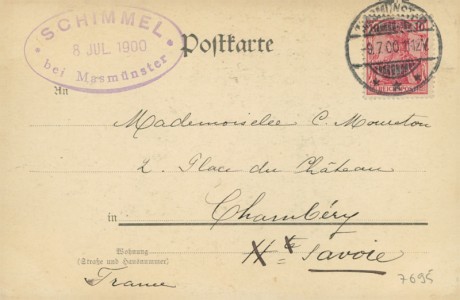 SCHIMMEL
8 JUL 1900
bei Masmünster
Postkarte
9.7.00
An
Mademoiselle C. Moureton
2. Place du Château
in Chambéry
Wohnung
(Straße und Hausnummer)
Savoie
France
7695